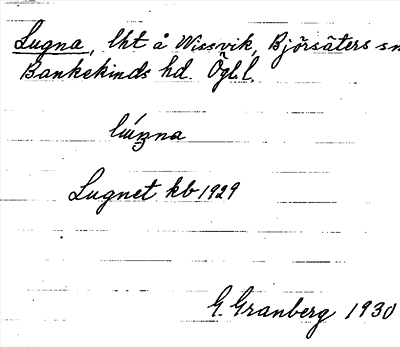 Lugna, lht å Wissvik, Björsäters sn
Bankekinds hd. Ögl.
Lugnet kb 1929
G. Granberg 1930